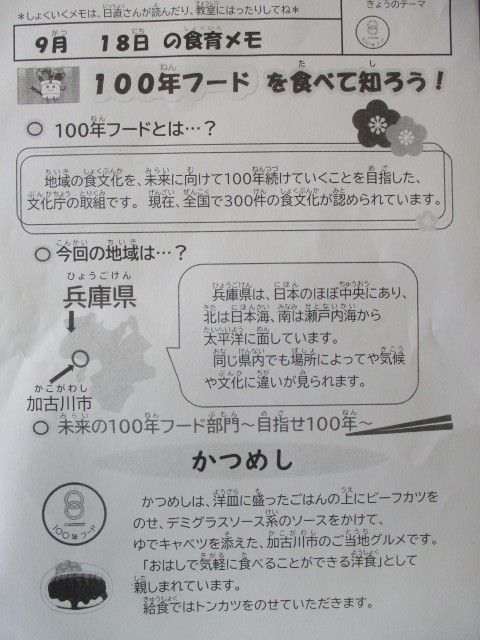 ＊しょくいくメモは、日直さんが読んだり、教室にはったりしてね＊
きょうのテーマ
9月 18日 の食育メモ
100年フード を食べて知ろう！
○ 100年フードとは…？
地域の食文化を、未来に向けて100年続けていくことを目指した、
文化庁の取組です。 現在、全国で300件の食文化が認められています。
○ 今回の地域は…？
兵庫県
兵庫県は、日本のほぼ中央にあり、
北は日本海、南は瀬戸内海から
太平洋に面しています。
同じ県内でも場所によってや気候
や文化に違いが見られます。
加古川市
○ 未来の100年フード部門～目指せ100年～
かつめし
かつめしは、洋皿に盛ったごはんの上にビーフカツを
のせ、デミグラスソース系のソースをかけて、
ゆでキャベツを添えた、加古川市のご当地グルメです。
「おはしで気軽に食べることができる洋食」として
親しまれています。
給食ではトンカツをのせていただきます。
100年フード